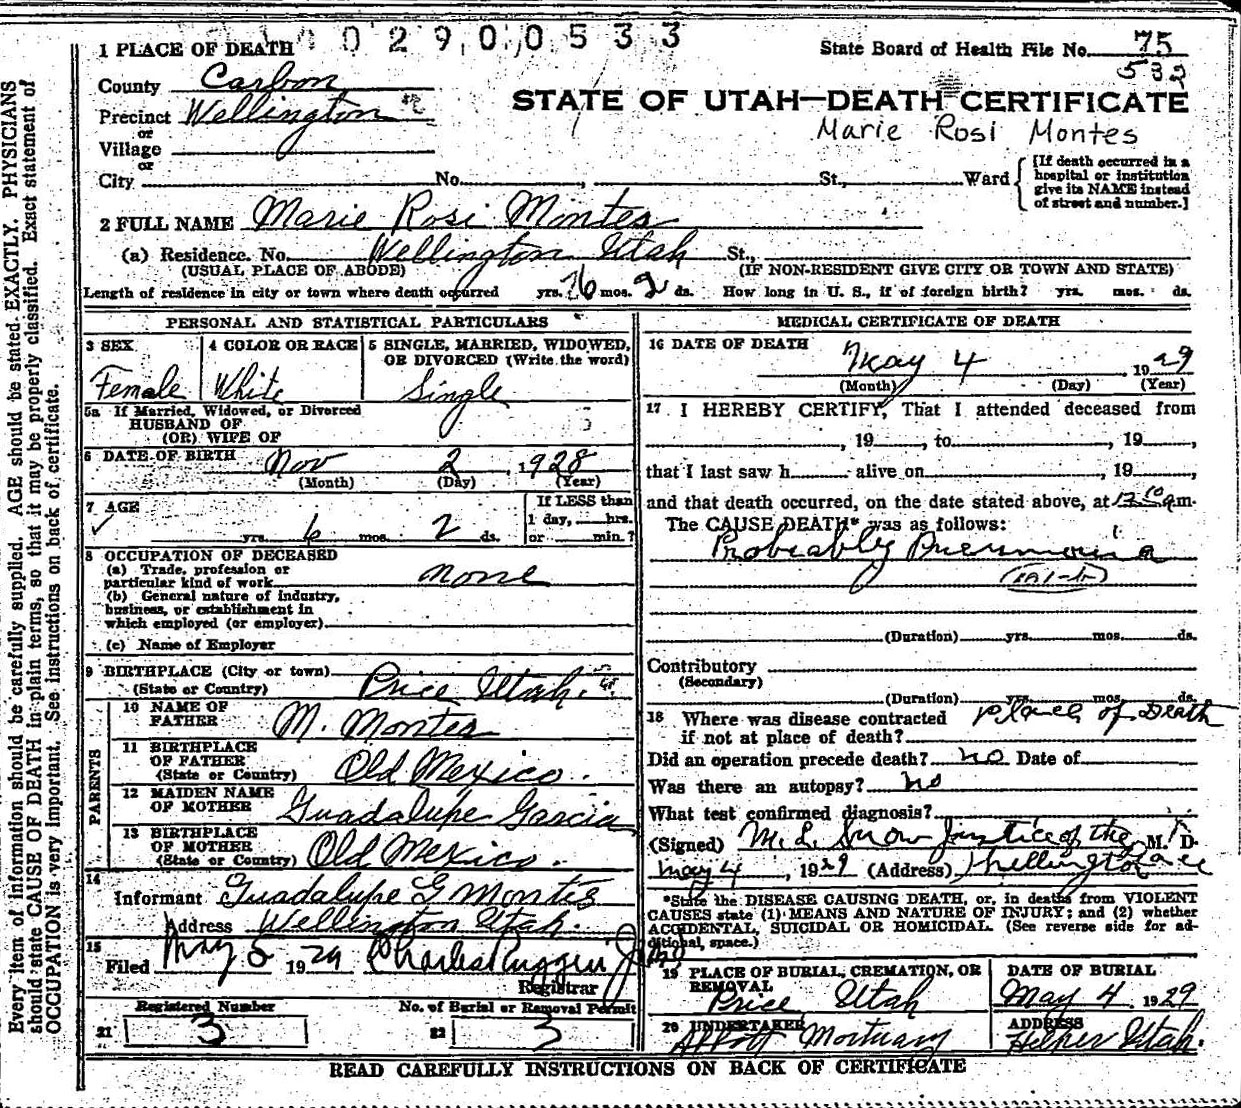 0 2 9 0 0 5 3 3
1 PLACE OF DEATH
State Board of Health File No. 75
532
County Carbon
STATE OF UTAH—DEATH CERTIFICATE
Precinct Wellington
Marie Rosi Montes
or
Village
or
City No. , St., Ward
[If death occurred in a
hospital or institution
give its NAME instead
of street and number.]
2 FULL NAME Marie Rosi Montes
(a) Residence. No. Wellington Utah St.,
(USUAL PLACE OF ABODE) (IF NON-RESIDENT GIVE CITY OR TOWN AND STATE)
Length of residence in city or town where death occurred yrs. 6 mos. 2 ds. How long in U. S., if of foreign birth? yrs. mos. ds.
PERSONAL AND STATISTICAL PARTICULARS
3 SEX
Female
4 COLOR OR RACE
White
5 SINGLE, MARRIED, WIDOWED,
OR DIVORCED (Write the word)
Single
5a If Married, Widowed, or Divorced
HUSBAND OF
(OR) WIFE OF
6 DATE OF BIRTH Nov 2, 1928
(Month) (Day) (Year)
7 AGE
yrs. 6 mos. 2 ds.
If LESS than
1 day, hrs.
or min.?
8 OCCUPATION OF DECEASED
(a) Trade, profession or
particular kind of work none
(b) General nature of industry,
business, or establishment in
which employed (or employer)
(c) Name of Employer
9 BIRTHPLACE (City or town)
(State or Country) Price Utah.
PARENTS
10 NAME OF
FATHER M. Montes
11 BIRTHPLACE
OF FATHER
(State or Country) Old Mexico.
12 MAIDEN NAME
OF MOTHER Guadalupe Garcia
13 BIRTHPLACE
OF MOTHER
(State or Country) Old Mexico.
14
Informant Guadalupe G Montes
Address Wellington Utah.
15
Filed May 5 1929 Charles
Registrar
Registered Number
21 3
No. of Burial or Removal Permit
22 3
MEDICAL CERTIFICATE OF DEATH
16 DATE OF DEATH
May 4, 1929
(Month) (Day) (Year)
17 I HEREBY CERTIFY, That I attended deceased from
, 19 , to , 19 ,
that I last saw h alive on , 19 ,
and that death occurred, on the date stated above, at 12 10 am.
The CAUSE DEATH* was as follows:
Probably Pneumonia
(Duration) yrs. mos. ds.
Contributory
(Secondary)
(Duration) yrs. mos. ds.
18 Where was disease contracted place of Death
if not at place of death?
Did an operation precede death? no Date of
Was there an autopsy? no
What test confirmed diagnosis?
(Signed) M. L. Snow Justice of the M. D.
May 4, 1929 (Address) Wellington
*State the DISEASE CAUSING DEATH, or, in deaths from VIOLENT
CAUSES state (1) MEANS AND NATURE OF INJURY; and (2) whether
ACCIDENTAL, SUICIDAL OR HOMICIDAL. (See reverse side for ad-
ditional, space.)
19 PLACE OF BURIAL, CREMATION, OR
REMOVAL
Price Utah
DATE OF BURIAL
May 4 1929
20 UNDERTAKER
Mortuary
ADDRESS
Helper Utah.
READ CAREFULLY INSTRUCTIONS ON BACK OF CERTIFICATE
Every item of information should be carefully supplied. AGE should be stated EXACTLY. PHYSICIANS
should state CAUSE OF DEATH in plain terms, so that it may be properly classified. Exact statement of
OCCUPATION is very important. See instructions on back of certificate.